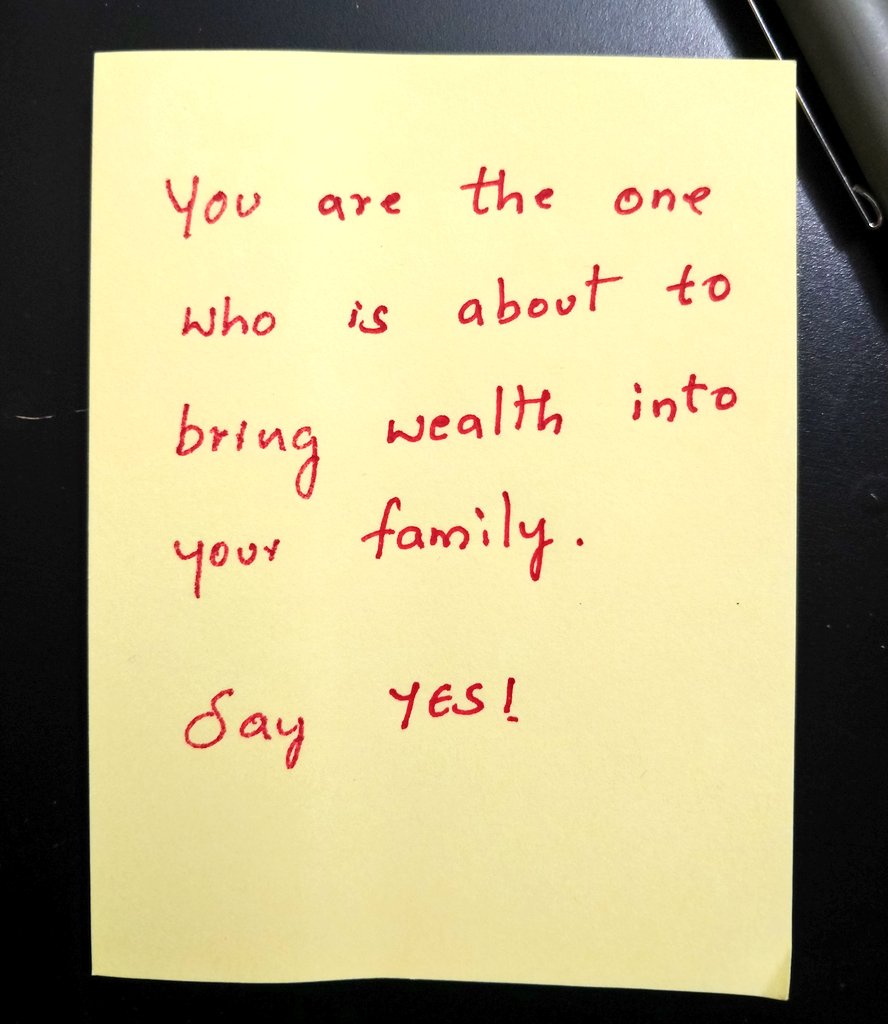 You are the one
who is about to
bring wealth into
your family.
Say YES!